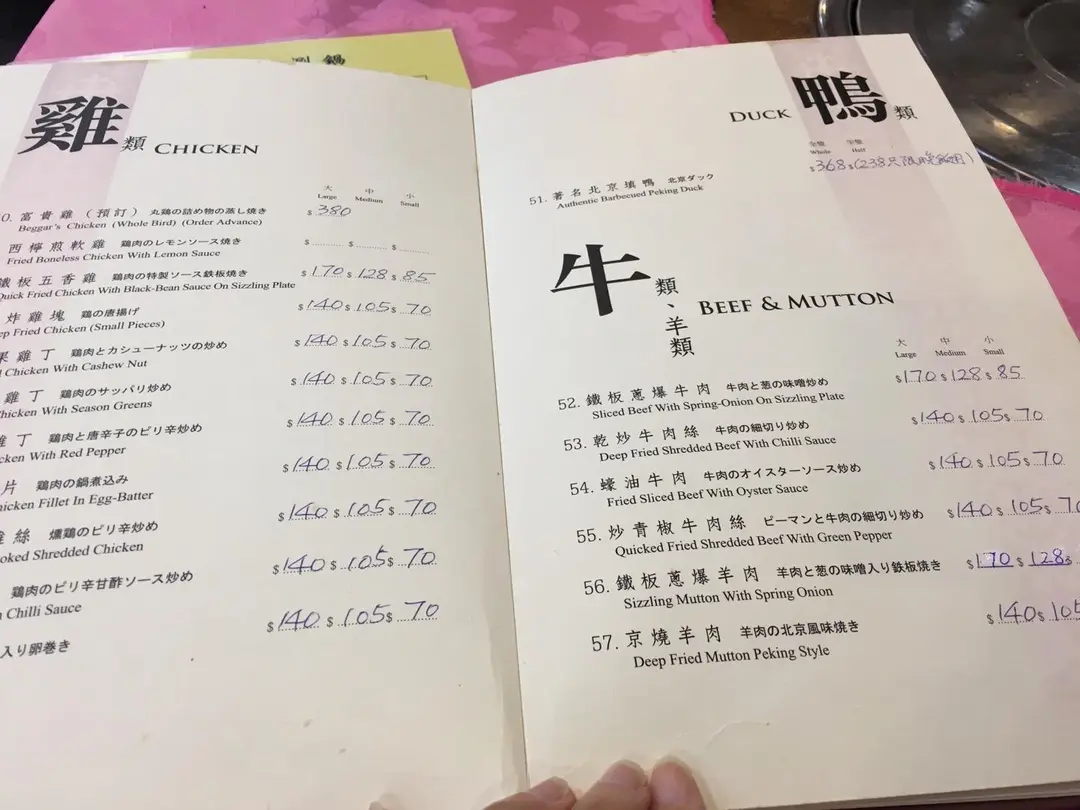 鍋
雞 類 CHICKEN
大 中 小
Large Medium Small
0. 富貴雞 (預訂) 丸鶏の詰め物の蒸し焼き $ 380
Beggar's Chicken (Whole Bird) (Order Advance)
西檸煎軟雞 鶏肉のレモンソース焼き $ $ $
Fried Boneless Chicken With Lemon Sauce
鐵板五香雞 鶏肉の特製ソース鉄板焼き $ 170 $ 128 $ 85
Quick Fried Chicken With Black-Bean Sauce On Sizzling Plate
炸雞塊 鶏の唐揚げ $ 140 $ 105 $ 70
ep Fried Chicken (Small Pieces)
果雞丁 鶏肉とカシューナッツの炒め $ 140 $ 105 $ 70
d Chicken With Cashew Nut
雞丁 鶏肉のサッパリ炒め $ 140 $ 105 $ 70
Chicken With Season Greens
雞丁 鶏肉と唐辛子のピリ辛炒め $ 140 $ 105 $ 70
cken With Red Pepper
片 鶏肉の鍋煮込み $ 140 $ 105 $ 70
hicken Fillet In Egg-Batter
雞絲 燻鶏のピリ辛炒め $ 140 $ 105 $ 70
oked Shredded Chicken
鶏肉のピリ辛甘酢ソース炒め $ 140 $ 105 $ 70
n Chilli Sauce
入り卵巻き $ 140 $ 105 $ 70
DUCK 鴨 類
Whole Half
51. 著名北京填鴨 北京ダック $ 368 $ (238只限晚飯用)
Authentic Barbecued Peking Duck
牛 類、羊類 BEEF & MUTTON
大 中 小
Large Medium Small
52. 鐵板蔥爆牛肉 牛肉と葱の味噌炒め $ 170 $ 128 $ 85
Sliced Beef With Spring-Onion On Sizzling Plate
53. 乾炒牛肉絲 牛肉の細切り炒め $ 140 $ 105 $ 70
Deep Fried Shredded Beef With Chilli Sauce
54. 蠔油牛肉 牛肉のオイスターソース炒め $ 140 $ 105 $ 70
Fried Sliced Beef With Oyster Sauce
55. 炒青椒牛肉絲 ピーマンと牛肉の細切り炒め $ 140 $ 105 $ 70
Quicked Fried Shredded Beef With Green Pepper
56. 鐵板蔥爆羊肉 羊肉と葱の味噌入り鉄板焼き $ 170 $ 128 $
Sizzling Mutton With Spring Onion
57. 京燒羊肉 羊肉の北京風味焼き $ 140 $ 105
Deep Fried Mutton Peking Style